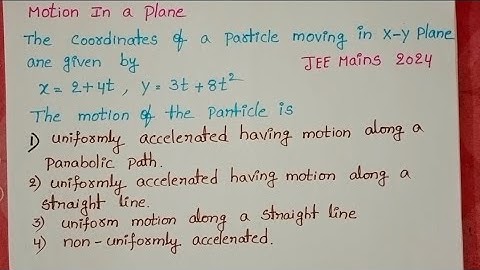 Motion In a Plane
The Coordinates of a particle moving in X-Y Plane
are given by JEE Mains 2024
x = 2+4t , y = 3t + 8t²
The motion of the particle is
1) uniformly accelerated having motion along a
Parabolic path.
2) uniformly accelerated having motion along a
straight line.
3) uniform motion along a straight line
4) non-uniformly accelerated.